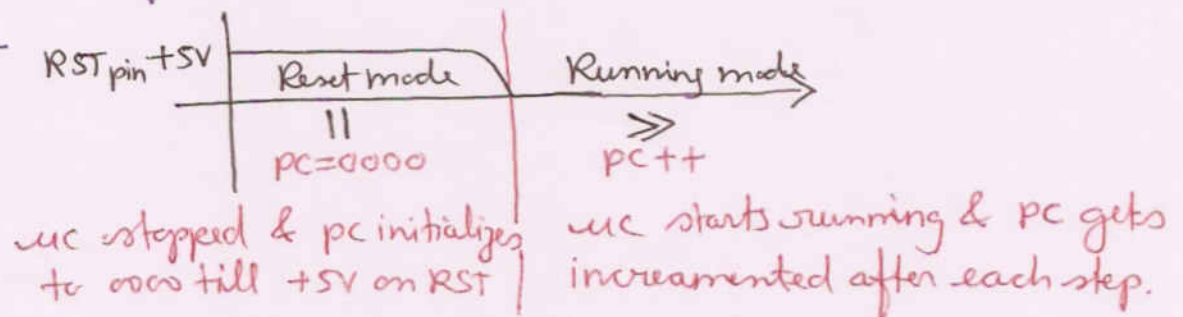 RST pin +5V
Reset mode
Running mode
||
>>
PC=0000
PC++
μc stopped & pc initializes
to 0000 till +5V on RST
μc starts running & pc gets
increamented after each step.